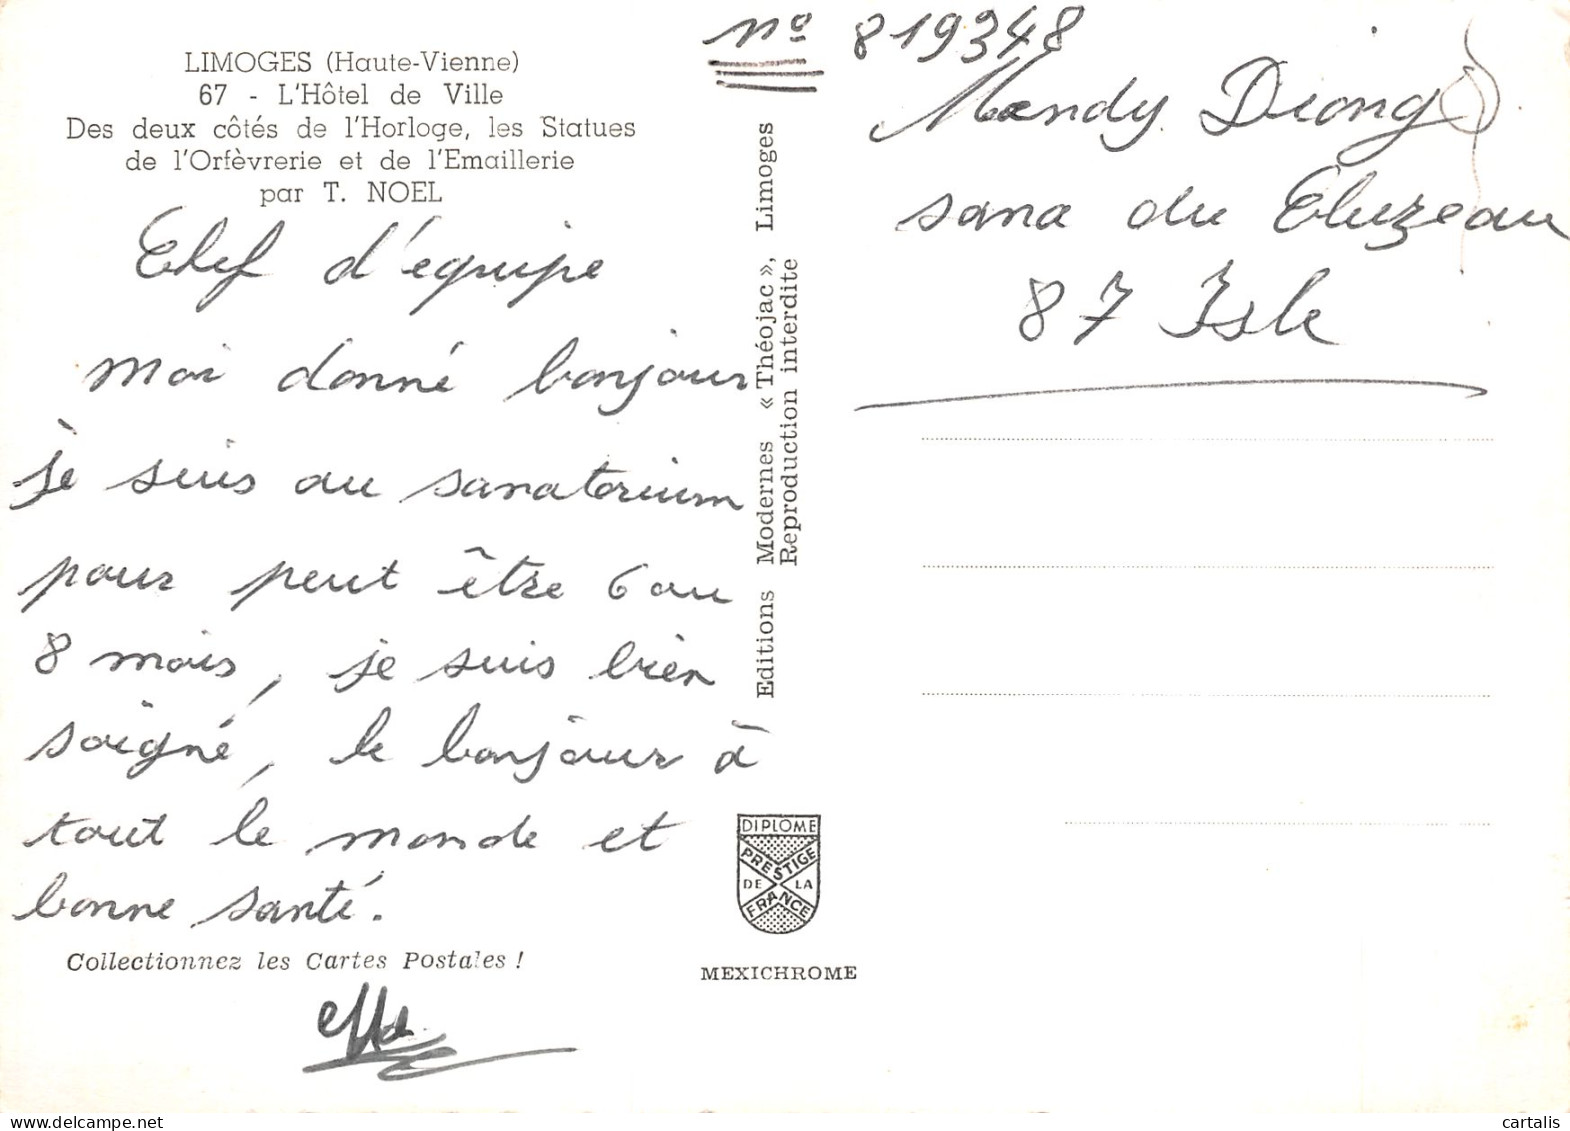 LIMOGES (Haute-Vienne)
67 - L'Hôtel de Ville
Des deux côtés de l'Horloge, les Statues
de l'Orfèvrerie et de l'Emaillerie
par T. NOEL
Chef d'équipe
moi donné bonjour
je suis au sanatorium
pour peut être 6 ou
8 mois, je suis bien
soigné, le bonjour à
tout le monde et
bonne santé.
Collectionnez les Cartes Postales !
Editions Modernes « Théojac », Limoges
Reproduction interdite
DIPLOME
PRESTIGE
DE LA
FRANCE
MEXICHROME
nº 819348
Mendy Diong
sana du Cluzeau
87 Isle
cartalis
www.delcampe.net